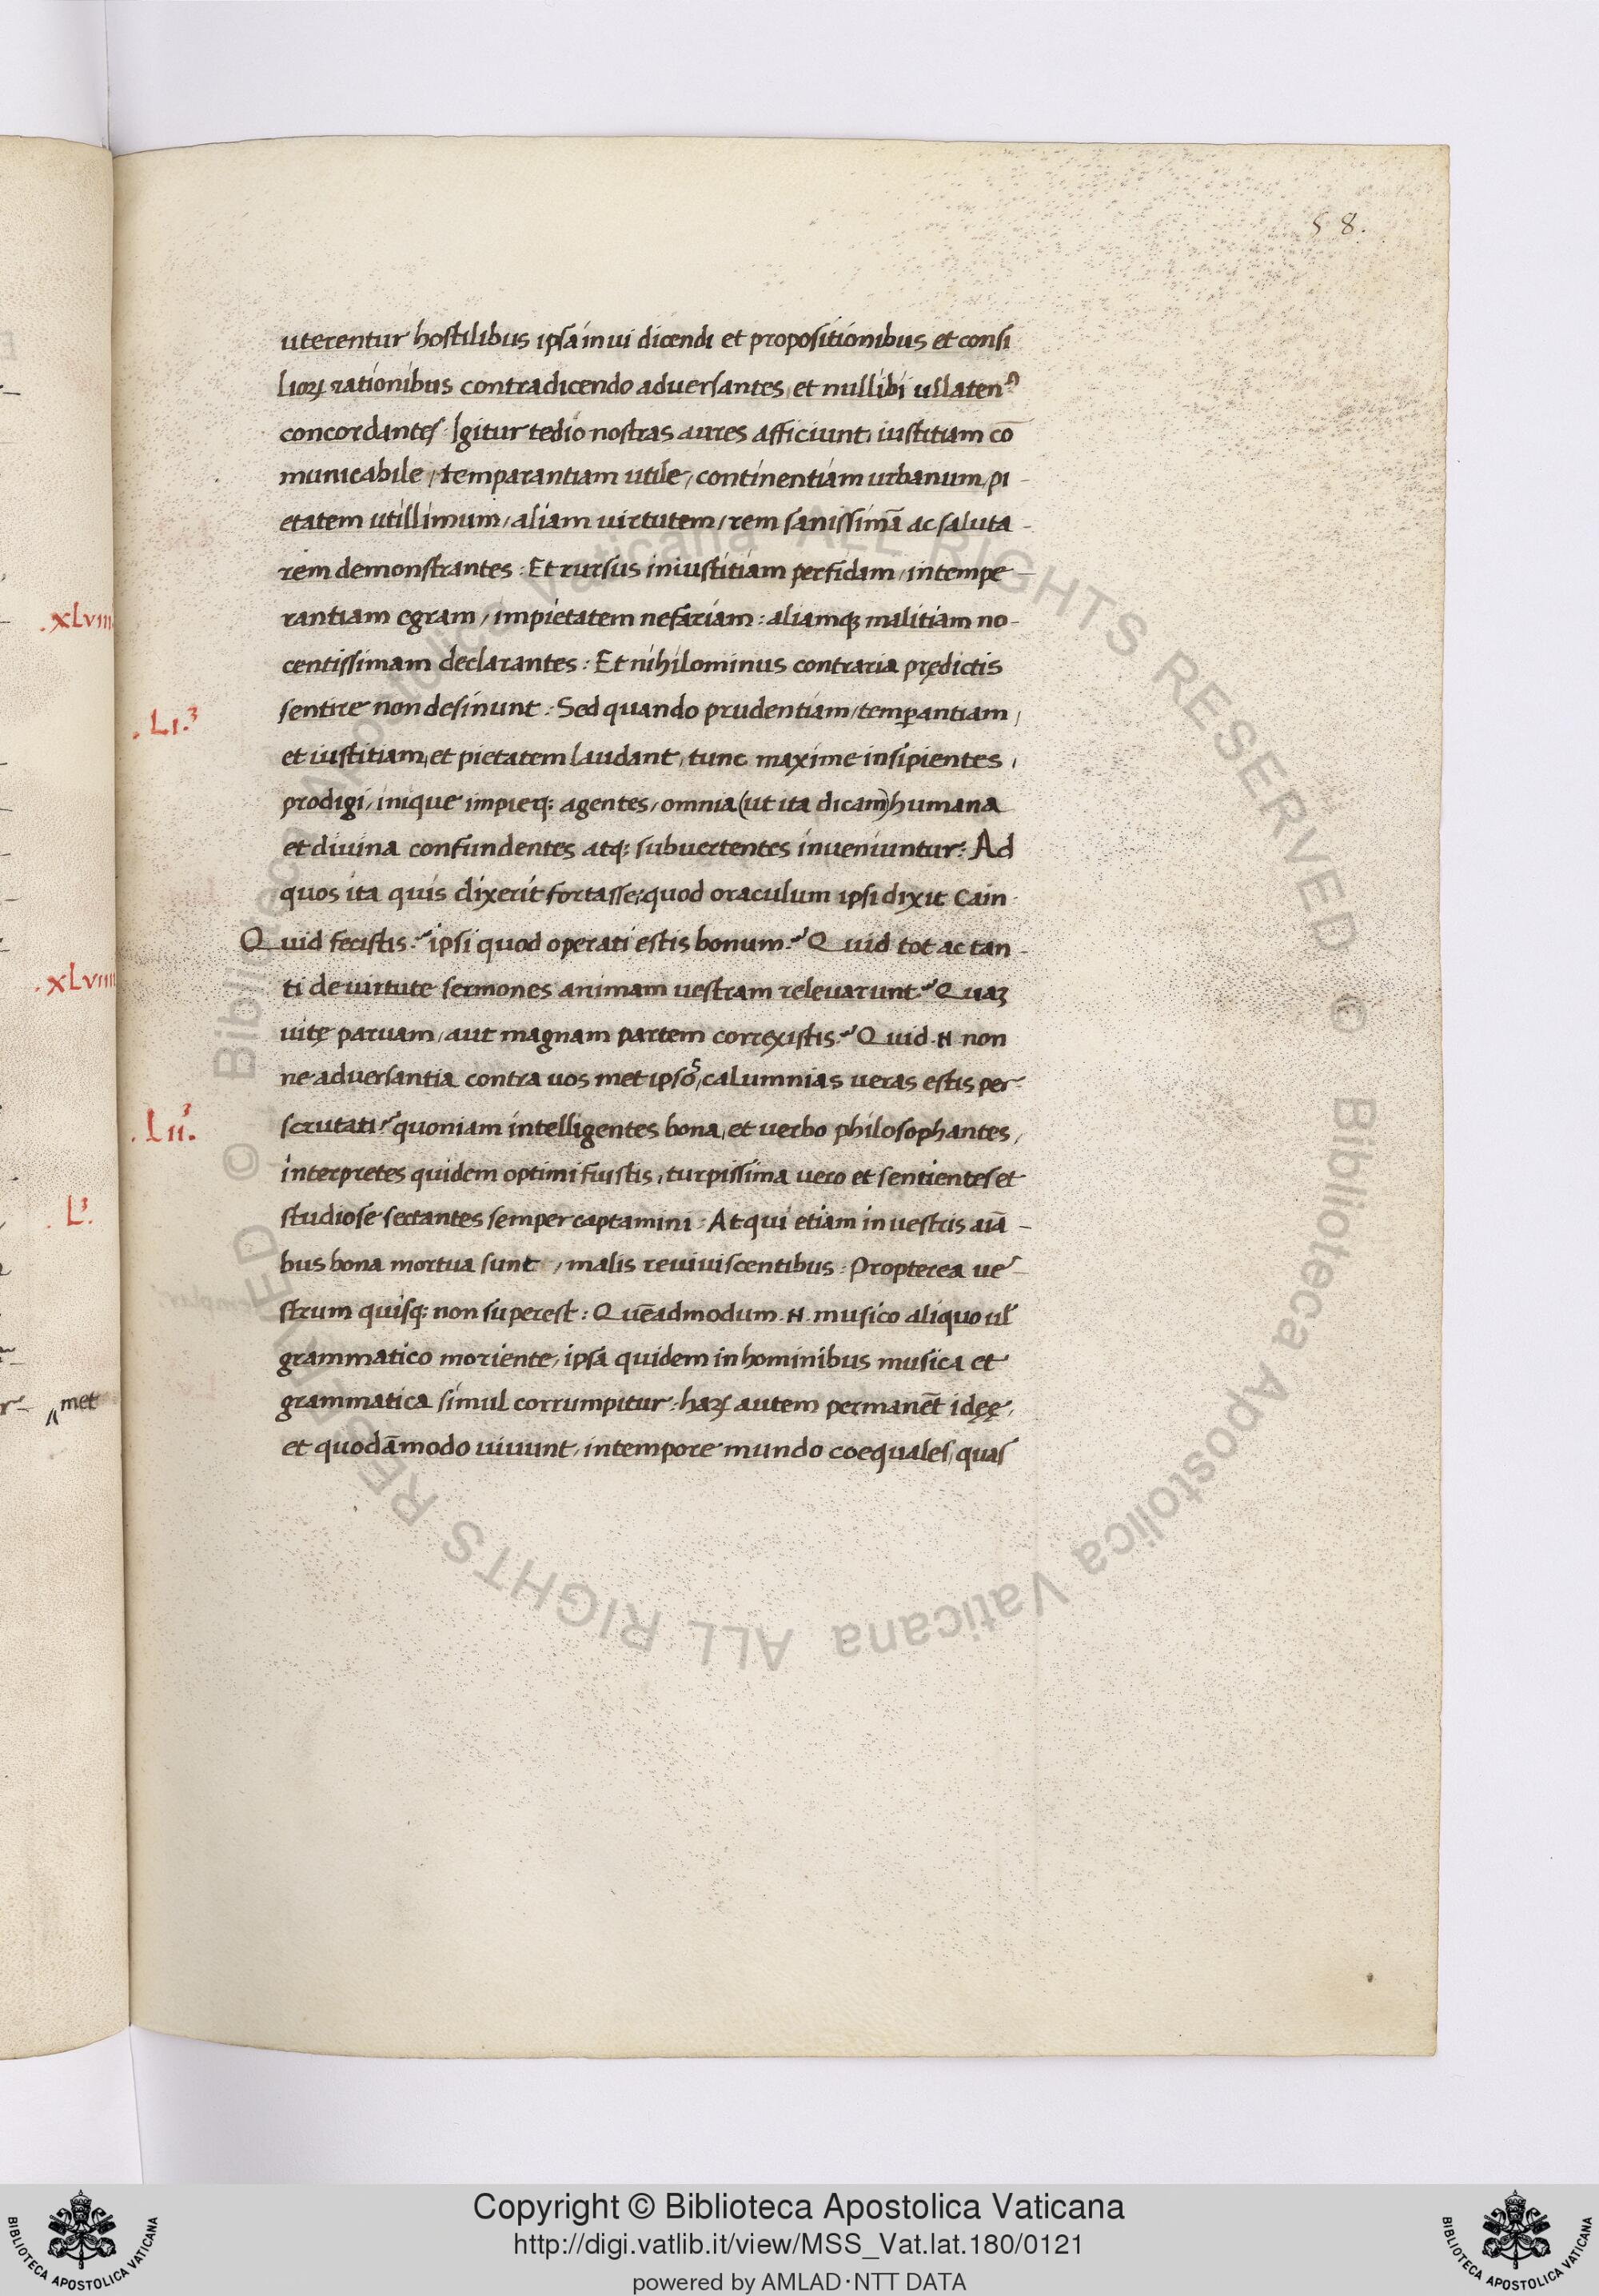 58.
uterentur hostilibus ipsa in ui dicendi et propositionibus et consi
lioꝝ rationibus contradicendo aduersantes, et nullibi ullatenꝰ
concordantes. Igitur tedio nostras aures afficiunt, iustitiam cō
municabile, temparantiam utile, continentiam urbanum, pi-
etatem utillimum, aliam uirtutem, rem sanissimā ac saluta-
rem demonstrantes: Et rursus iniustitiam perfidam, intempe-
rantiam egram, impietatem nefariam: aliamqꝫ malitiam no-
centissimam declarantes: Et nihilominus contraria prędictis
.LI.
sentire non desinunt: Sed quando prudentiam, temꝑantiam,
et iustitiam, et pietatem laudant, tunc maxime insipientes,
prodigi, inique impieqꝫ agentes, omnia (ut ita dicam) humana
et diuina confundentes atqꝫ subuertentes inueniuntur: Ad
quos ita quis dixerit fortasse: quod oraculum ipsi dixit Cain
Quid fecistis? ipsi quod operati estis bonum? Quid tot ac tan-
ti de uirtute sermones animam uestram releuarunt? Quaꝫ
uitę paruam, aut magnam partem correxistis? Quid .N. non
ne aduersantia contra uos met ipsōs, calumnias ueras estis per-
.LII.
scrutati? quoniam intelligentes bona, et uerbo philosophantes,
interpretes quidem optimi fuistis, turpissima uero et sentientes et
studiose sectantes semper captamini: Atqui etiam in uestris aīa-
bus bona mortua sunt, malis reuiuiscentibus: Propterea ue-
strum quisqꝫ non superest: Quēadmodum .N. musico aliquo ul̄
grammatico moriente, ipsa quidem in hominibus musica et
grammatica simul corrumpitur: haꝝ autem permanēt idęę,
et quodāmodo uiuunt, in tempore mundo coequales, quas
.XLVIII
.XLVIIII
.L.
met
Copyright © Biblioteca Apostolica Vaticana
http://digi.vatlib.it/view/MSS_Vat.lat.180/0121
powered by AMLAD·NTT DATA
BIBLIOTECA APOSTOLICA VATICANA
BIBLIOTECA APOSTOLICA VATICANA
© Biblioteca Apostolica Vaticana ALL RIGHTS RESERVED © Biblioteca Apostolica Vaticana ALL RIGHTS RESERVED